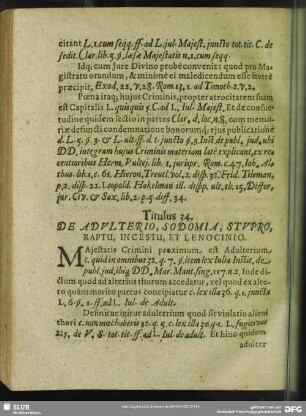 citant L. 1. cum seqq. ff. ad L. jul. Majest. juncto tot. tit. C. de
sedit. Clar. lib. 5. §. læsæ Majestatis n. 1. cum seqq.
Idq; cum Jure Divino probè convenit: quod pro Ma-
gistratu orandum, & minimè ei maledicendum esse severè
præcipit, Exod. 22. v. 28. Rom. 13. 1. ad Timoth. 2. v. 2.
Pœna itaq; hujus Criminis, propter atrocitatem suam
est Capitalis L. quisquis 5. C. ad L. Iul. Majest. Et de consue-
tudine quidem sectio in partes Clar. d. loc. n. 8. cum memo-
riæ defuncti condemnatione bonorumq; ejus publicatione
d. L. 5. §. 3. & L. ult. ff. d. t. juncto §. 3. Inst. de publ. jud. ubi
DD. integram hujus Criminis materiam latè explicant, ex re
centioribus Herm. Vultej. lib. 1. jurispr. Rom. c. 47. Ioh. Al-
thus. lib. 1. c. 61. Hieron. Treutl. vol. 2. disp. 32. Frid. Tileman.
p. 2. disp. 22. Leopold. Hakelman ill. disp. ult. th. 15. Differ.
jur. Civ. & Sax. lib. 2. p. 5. diff. 34.
Titulus 34.
DE ADVLTERIO, SODOMIA, STVPRO,
RAPTU, INCESTU, ET LENOCINIO.
Majestatis Crimini proximum est Adulterium
c. quid in omnibus 32. q. 7. §. item lex Iulia Instit. de
publ. jud. ibiq; DD. Mar. Mant. sing. 117. n. 2. Inde di-
ctum quod ad alterius thorum accedatur, vel quod ex alte-
ro quàm marito partus concipiatur c. lex illa 36. q. 1. juncta
L. 6. §. 1. ff. ad L. Iul. de Adult.
Definitur igitur adulterium quod sit violatio alieni
thori c. non mœchaberis 32. q. 5. c. lex illa 36. q. 1. L. fugitivus
225. de V. S. tot. tit. ff. ad L. Iul. de adult. Et hinc quidem
adulter